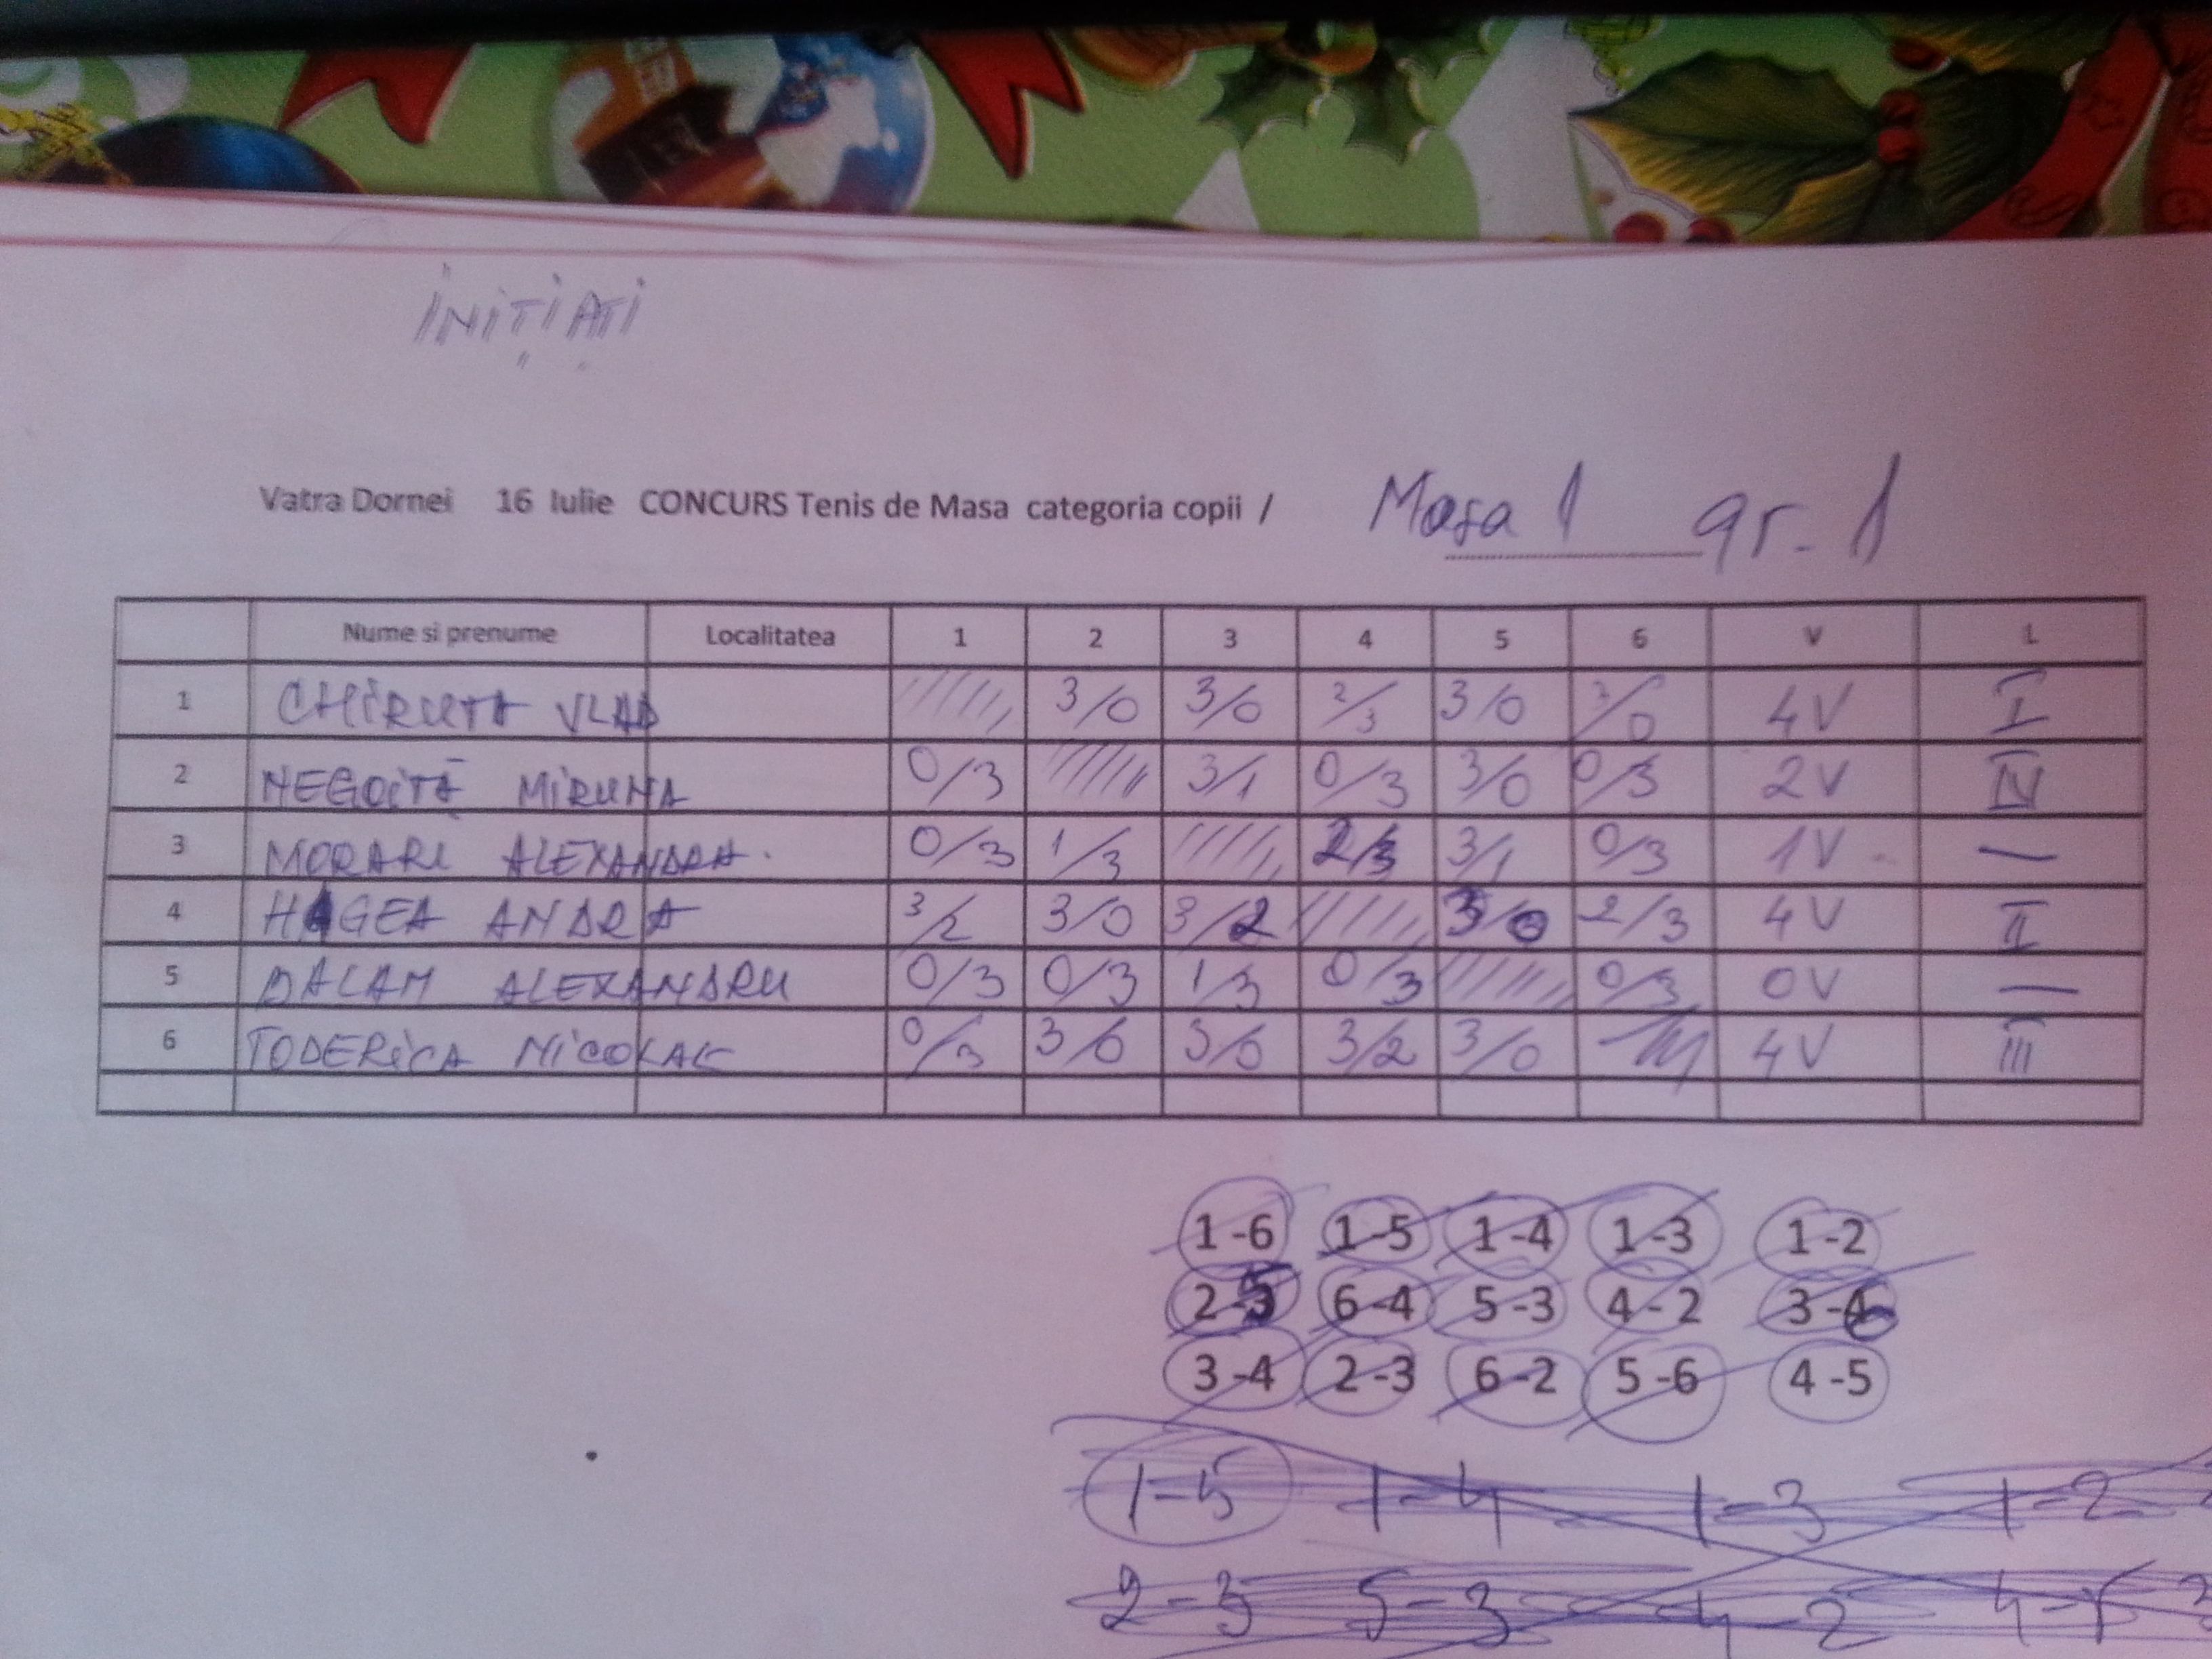 INIȚIAȚI
Vatra Dornei 16 Iulie CONCURS Tenis de Masa categoria copii / Masa 1 gr. 1
Nume si prenume Localitatea 1 2 3 4 5 6 V L
1 CHIRUTA VLAD 3/0 3/0 2/3 3/0 3/0 4V I
2 NEGOIȚĂ MIRUNA 0/3 3/1 0/3 3/0 0/3 2V IV
3 MORARI ALEXANDRA. 0/3 1/3 2/3 3/1 0/3 1V —
4 HAGEA ANDRA 3/2 3/0 3/2 3/0 2/3 4V II
5 DALAM ALEXANDRU 0/3 0/3 1/3 0/3 0/3 0V —
6 TODERICA NICOLAE 0/3 3/0 3/0 3/2 3/0 4V III
1 -6 1 -5 1 -4 1 -3 1 -2
2 -5 6 -4 5 -3 4 - 2 3 -6
3 -4 2 -3 6 -2 5 -6 4 -5
1-5 1-4 1-3 1-2
2-3 5-3 4-2 4-5